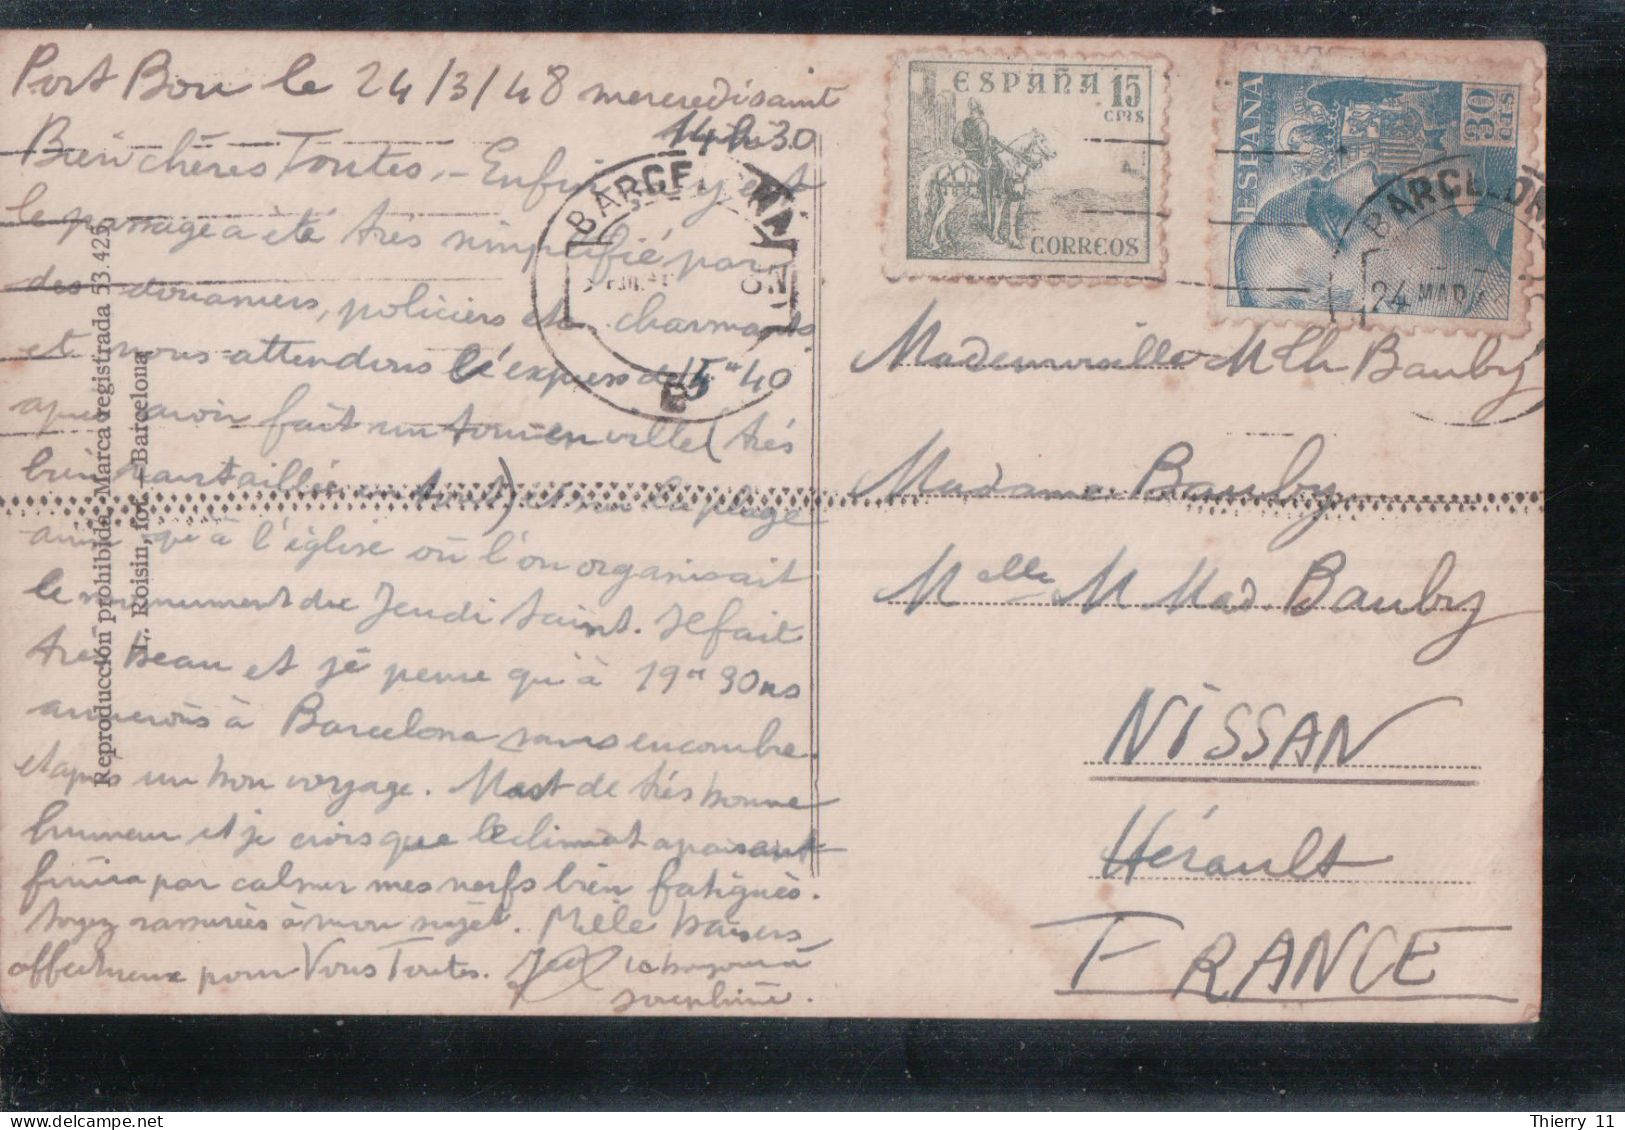 Port Bou le 24/3/48 mercredi saint
14 h 30
Bien chères Toutes. - Enfin j'y est
le passage a été très simplifié par
des douaniers, policiers etc. charmants
et nous attendons l'express de 15 h 40
après avoir fait un tour en ville (très
bien en tout) et sur la plage
ainsi qu'à l'église où l'on organisait
le monument du Jeudi Saint. Il fait
très beau et je pense qu'à 19 h 30 ns
arriverons à Barcelona sans encombre.
et après un bon voyage. de très bonne
humeur et je crois que le climat apaisant
finira par calmer mes nerfs bien fatigués.
Soyez rassurées à mon sujet. Mille baisers
affectueux pour Vous Toutes.
Josephine.
Reproducción prohibida. Marca registrada 53.425
L. Roisin, fot. - Barcelona
ESPAÑA 15
CTMS
CORREOS
ESPAÑA
30
CTS
BARCELONA
BARCELONA
24 MAR
Mademoiselle M Th Bauby
Madame Bauby
Melle M Mad. Bauby
NISSAN
Hérault
FRANCE
Thierry 11